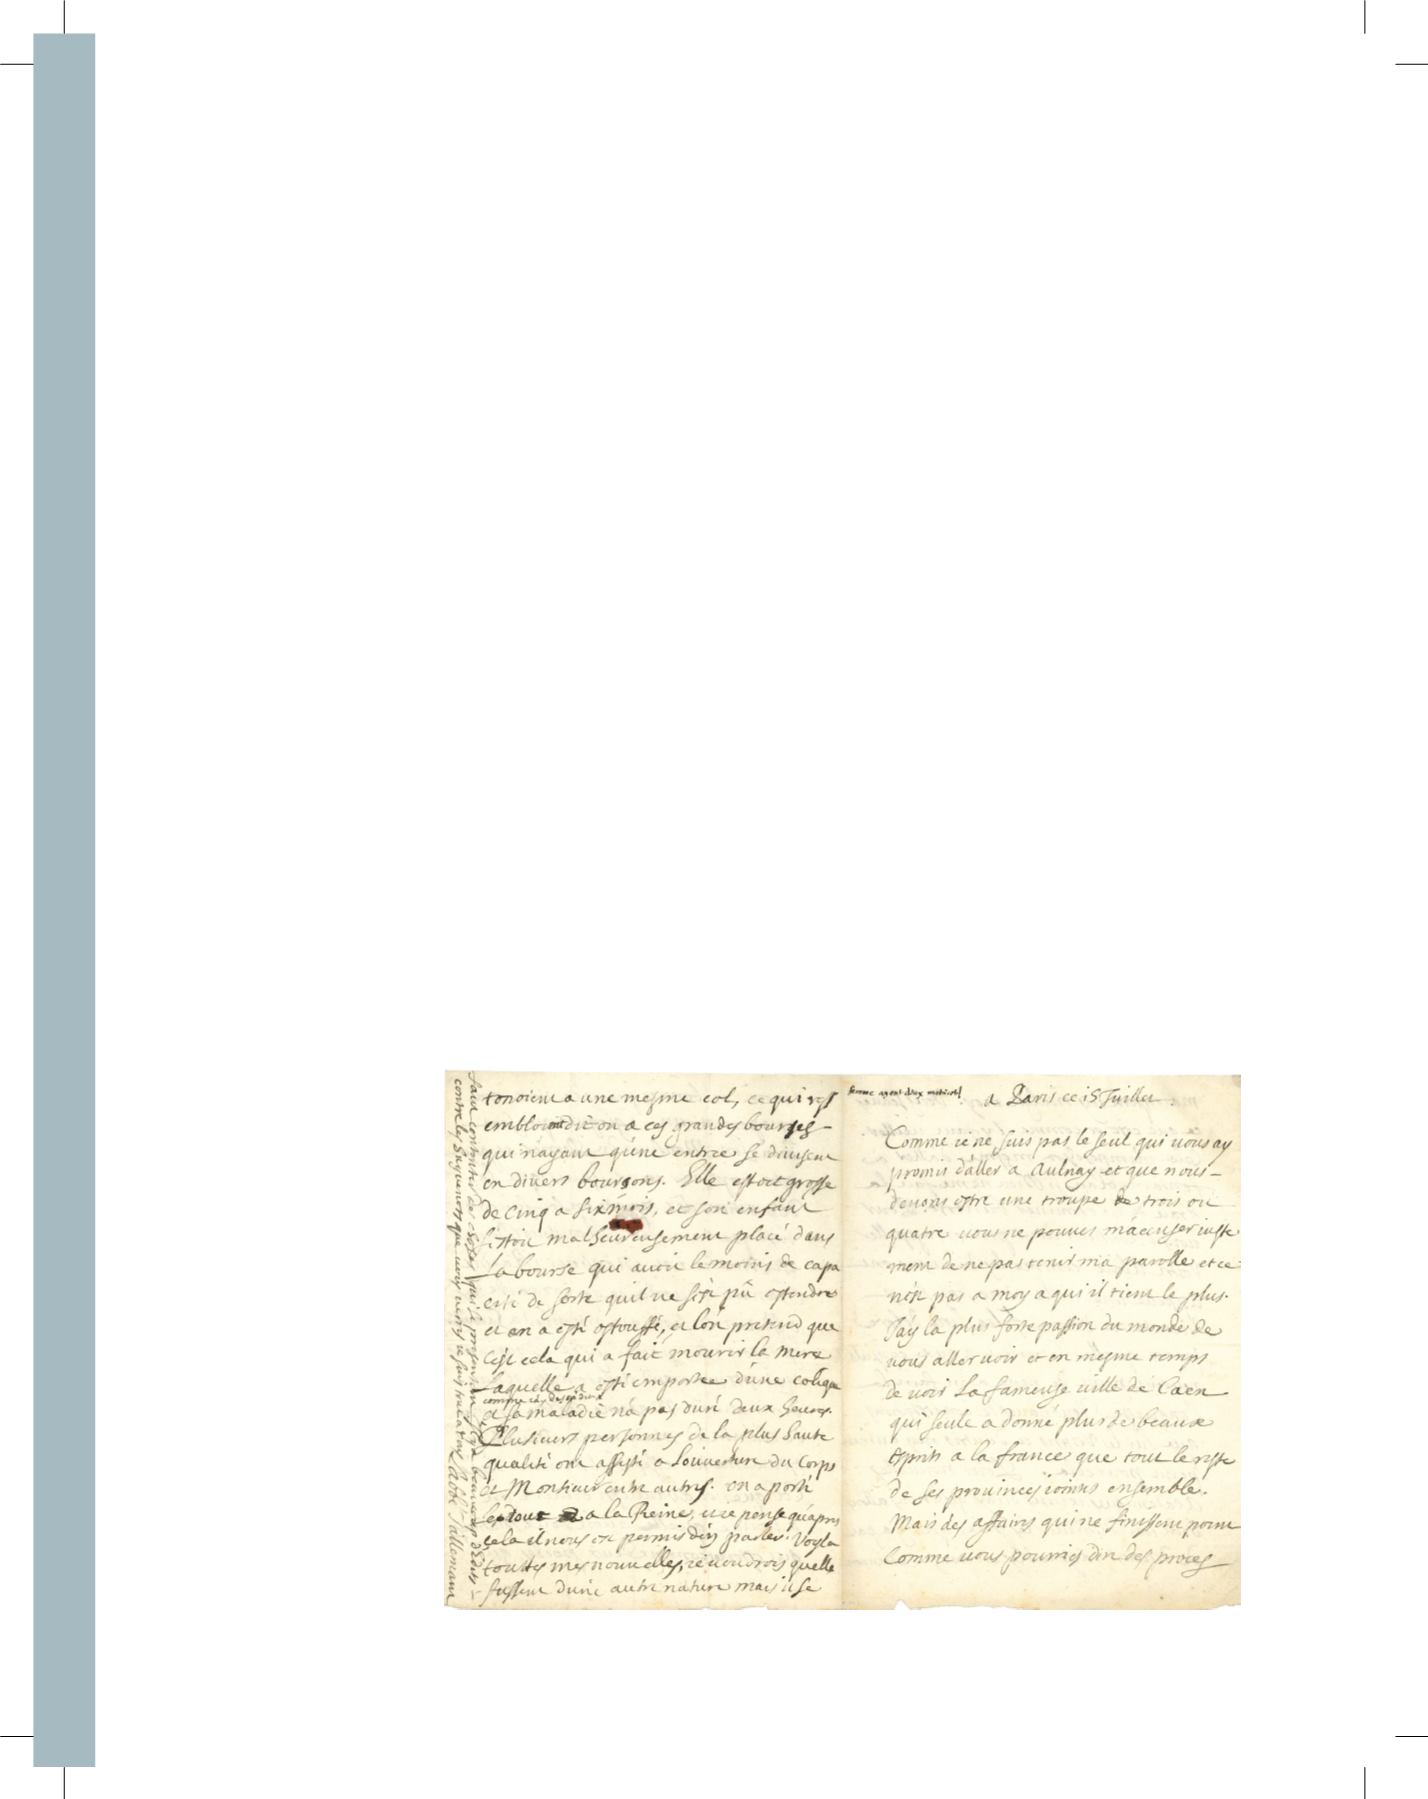 tenoient a une mesme col, ce qui res
embloit dit on a ces grandes bourses
qui n'ayant qu'une entree se divisent
en divers boursons. Elle estoit grosse
de cinq a six mois, et son enfant
s'estoit malheureusement placé dans
La bourse qui avoit le moins de capa
cité de sorte quil ne sest pû estendre
et en a esté estouffé, et lon pretend que
C'est cela qui a fait mourir la mere
Laquelle a esté emportee d'une colique
et sa maladie n'a pas duré deux heures.
Plusieurs personnes de la plus haute
qualité ont assisté a Louverture du Corps
et Monsieur entre autres. on a porté
le tout a la Reine, et ie pense qu'apres
cela il nous est permis d'en parler. Voyla
toutes mes nouvelles, ie voudrois quelle
fussent d'une autre nature mais il se
faut contenter de choses qui se presentent
contre les Huguenots que vous verrez ie suis tout a vous L'Abbé Tallemant
femme ayant deux matrices
a Paris ce 15 Juillet.
Comme ie ne suis pas le seul qui vous ay
promis d'aller a Aulnay et que nous
devons estre une troupe de trois ou
quatre vous ne pouves m'accuser iuste
ment de ne pas tenir ma parolle et ce
n'est pas a moy a qui il tient le plus.
J'ay la plus forte passion du monde de
vous aller voir et en mesme temps
de voir La fameuse ville de Caen
qui seule a donné plus de beaux
Esprits a la france que tout le reste
de ses provinces iointes ensemble.
Mais des affaires qui ne finissent point
Comme vous pourries dire des proces